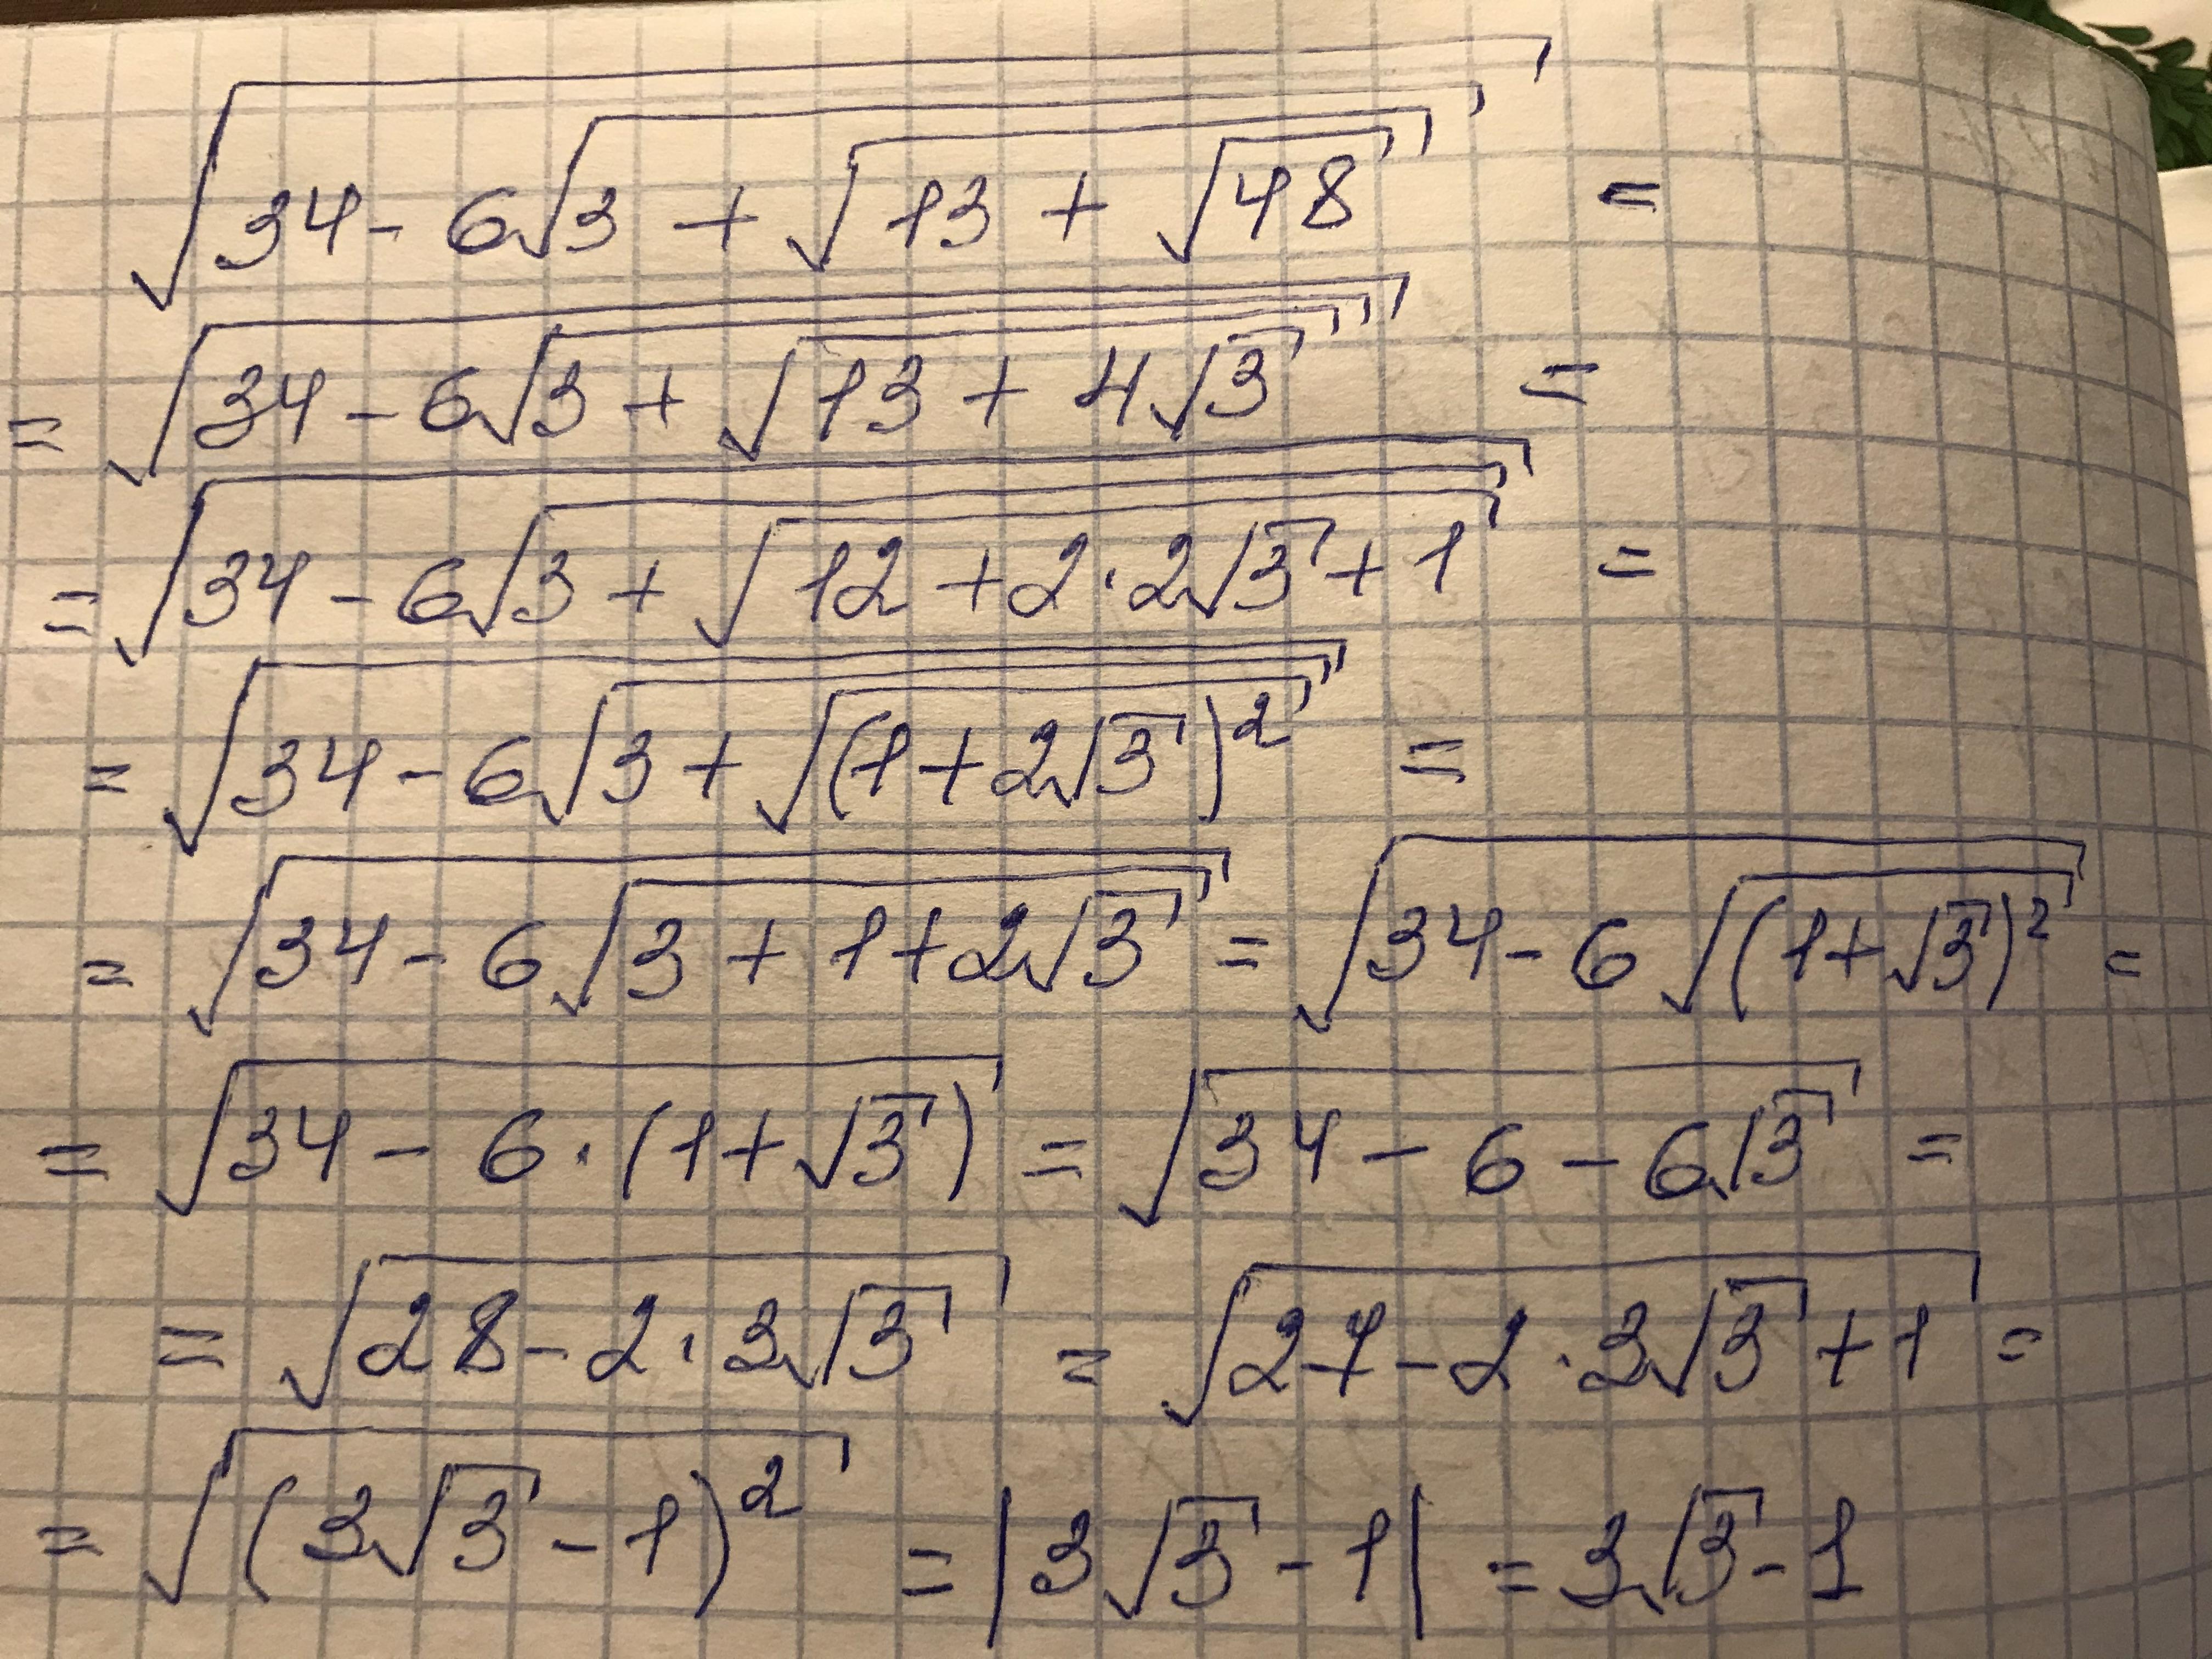 √(34 - 6√(3 + √(13 + √48))) =
= √(34 - 6√(3 + √(13 + 4√3))) =
= √(34 - 6√(3 + √(12 + 2·2√3 + 1))) =
= √(34 - 6√(3 + √((1 + 2√3)²))) =
= √(34 - 6√(3 + 1 + 2√3)) = √(34 - 6√((1 + √3)²)) =
= √(34 - 6·(1 + √3)) = √(34 - 6 - 6√3) =
= √(28 - 2·3√3) = √(27 - 2·3√3 + 1) =
= √((3√3 - 1)²) = |3√3 - 1| = 3√3 - 1